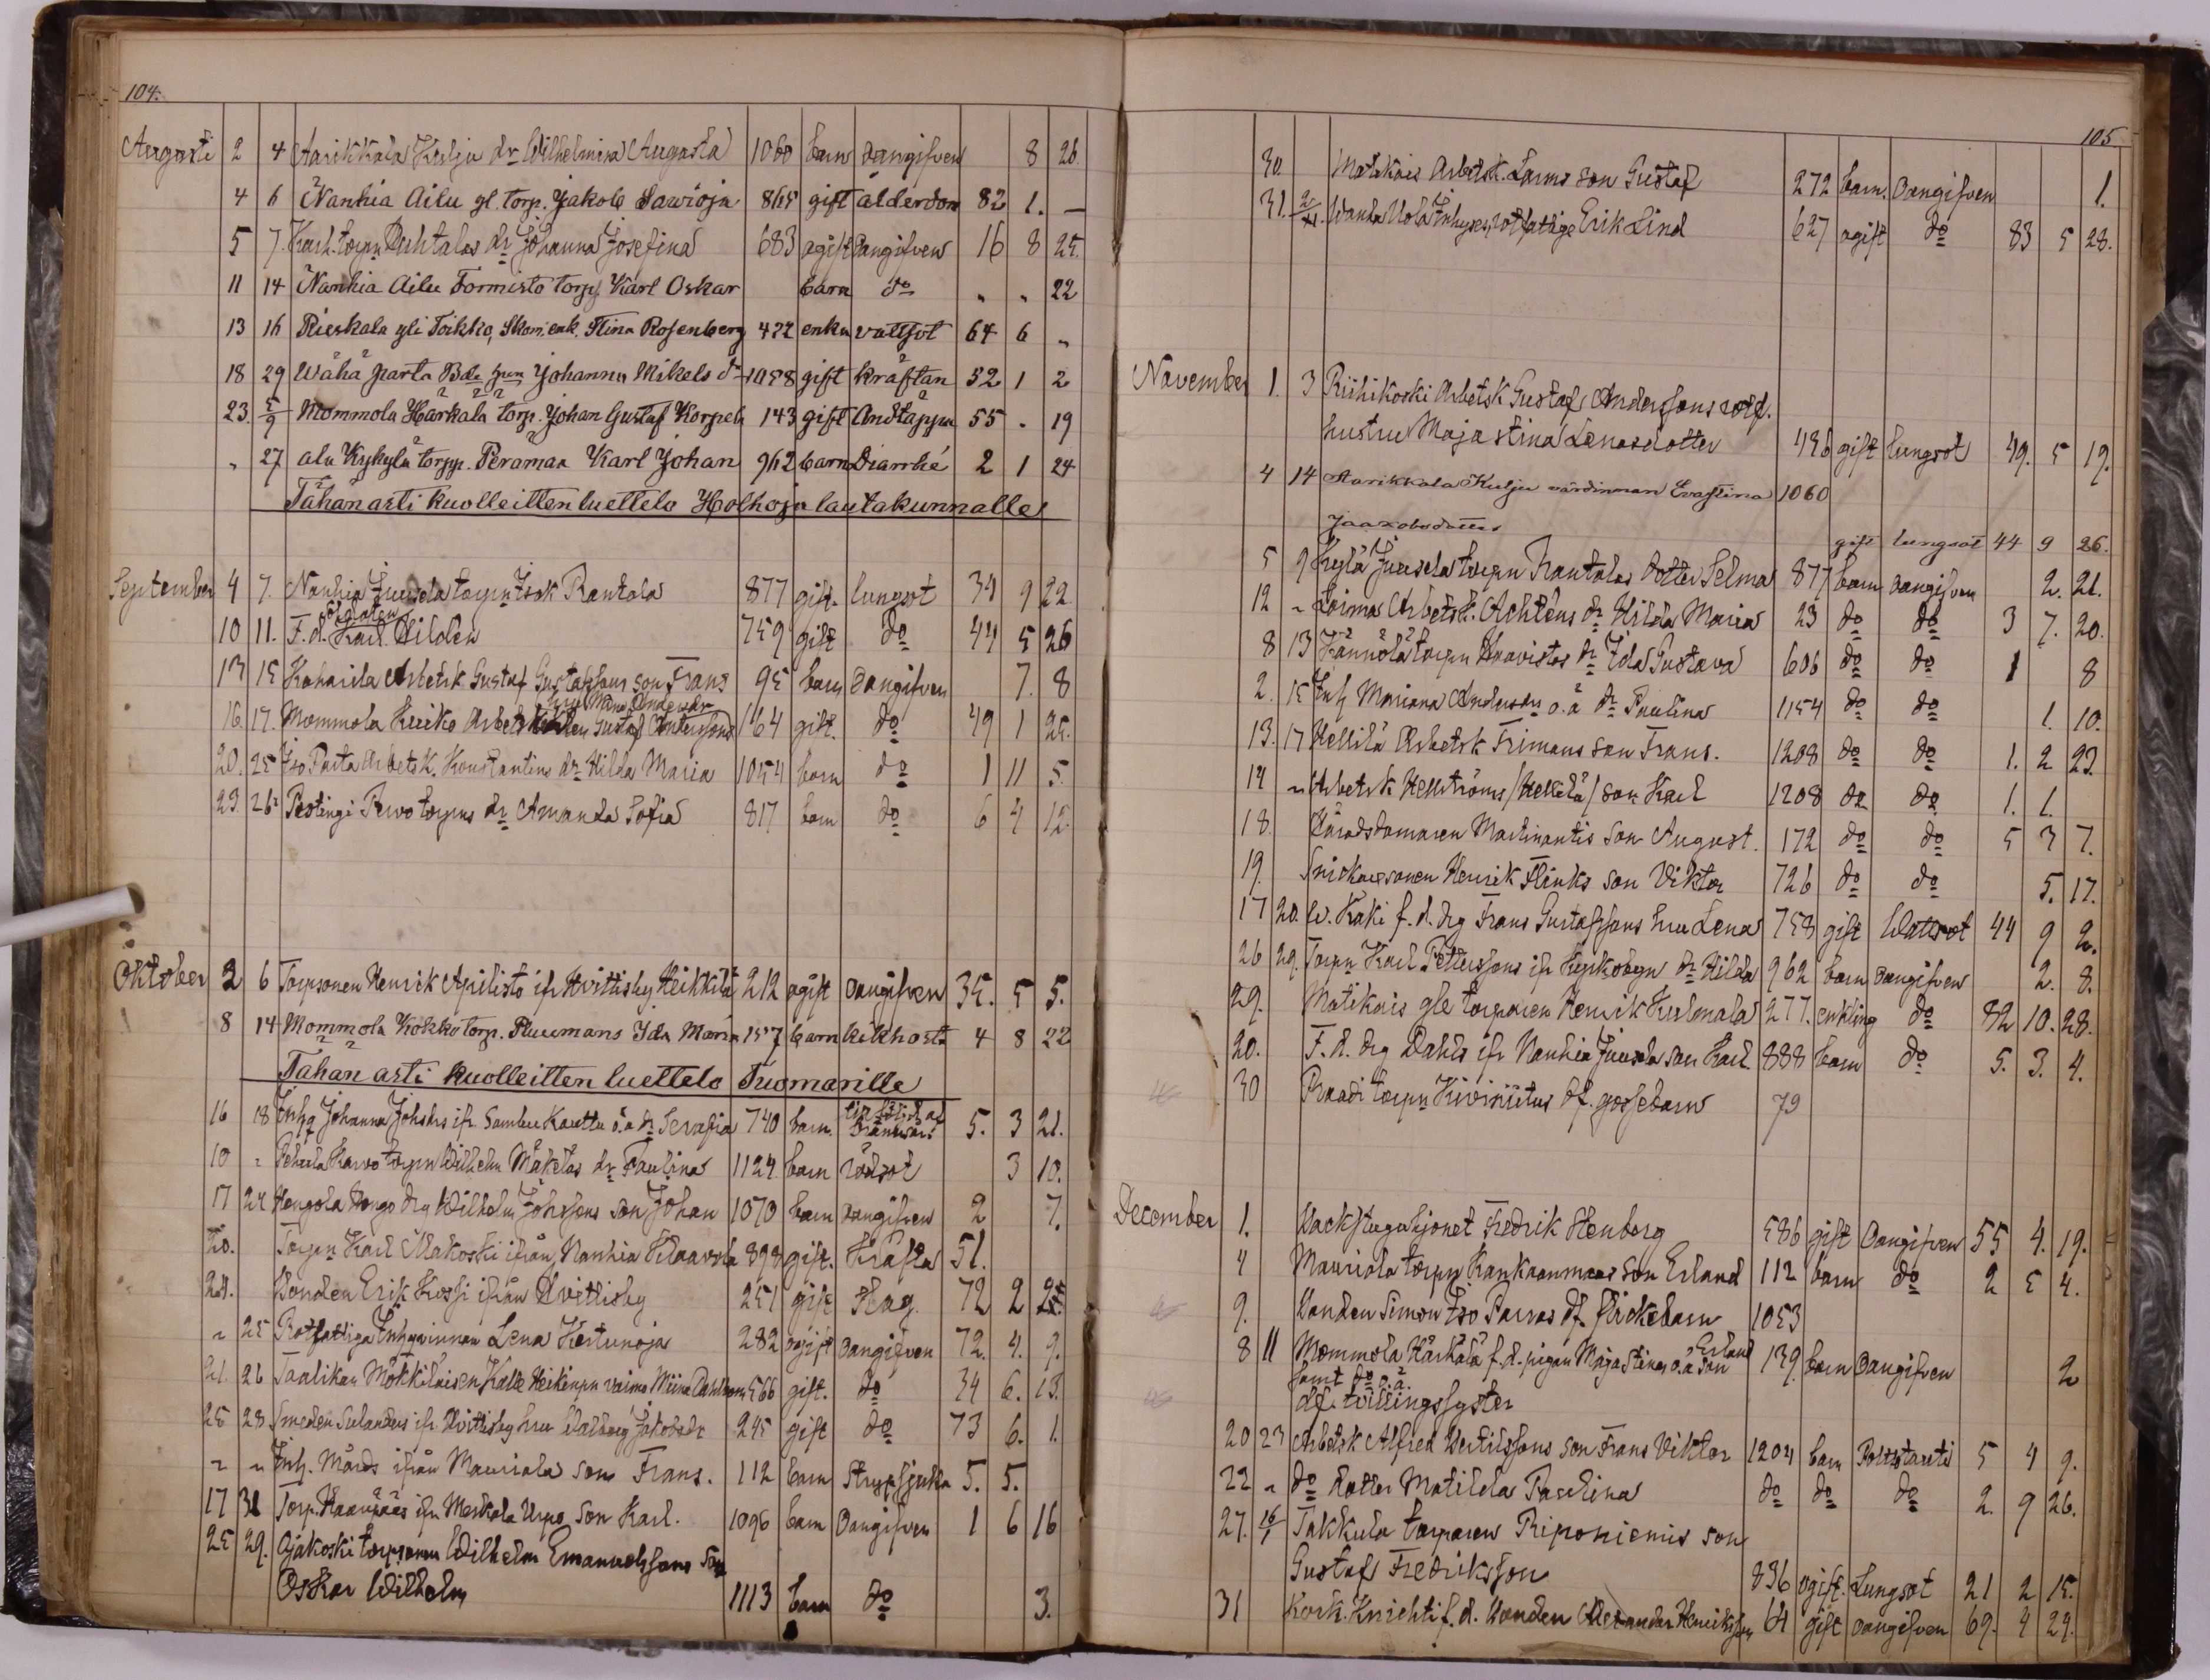 104.
Augusti 2 4 Aarikkala Kulju dr Wilhelmina Augusta 1060 barn oangifven 8 26.
4 6 Nanhia Ailu gl. torp. Jakob Sawioja 865 gift ålderdom 82 1. —
5 7. torpn Puhtalas dr Johanna Josefina 683 ogift oangifven 16 8 25.
11 14 Nanhia Ailu Tormisto torp. Karl Oskar barn do " " 22
13 16 Rieskala yli Toikko, enk. Stina Rosenberg 422 enka vattsot 64 6 "
18 29 Wähä parta Bde Johanna Mikels dr 1058 gift kräftan 52 1 2
23. 5/9 Mommola Härkälä torp. Johan Gustaf Korpela 143 gift Andtäppa 55 . 19
" 27 ala Kykylä torpp. Peraman Karl Johan 962 barn Diarrhé 2 1 24
Tähän asti kuolleitten luettelo Holhoja lautakunnalle
September 4 7. Nanhia Juusela torpn Isak Rantala 877 gift. lungsot 34 9 22.
10 11. F. d. Soldaten Karl Hilden 759 gift do 44 5 26
13 15 Koharila Arbetsk. Gustaf Gustafssons son Frans 95 barn oangifven 7. 8
16. 17. Mommola Kuiko Arbetsk Gustaf Anderssons hru Maria Andersdr 164 gift. do 49 1 25.
20. 25 Iso Parta Arbetsk. Konstantins dr Hilda Maria 1054 barn do 1 11 5.
23. 26 torpns dr Amanda Sofia 817 barn do 6 4 12.
Oktober 2 6 Torpsonen Henrik Apilisto ifr Hvittisby Heikkilä 212 ogift oangifven 35. 5 5.
8 14 Mommola Kokko torp. Pluumans Ida Maria 157 barn kikhosta 4 8 22
Tähän asti kuolleitten luettelo Tuomarille
16 18 Inhq Johanna Johsdrs ifr. Sambu Kouttu o.ä dr Serafia 740 barn. 5. 3 21.
10 " Pehula Harvo torpn Wilhelm Mäkeläs dr Paulina 1124 barn rödsot 3 10.
17 24 Hongola Hongo drg Wilhelm Johssons son Johan 1070 barn oangifven 2 7.
20. Torpn Karl Makoski ifrån Nanhia Klaavola 898 gift. Kräfta 51.
24. Bonden Erik Kossi ifrån Hvittisby 251 gift Slag 72 2 25.
" 25 Rotfattiga Inhqvinnan Lena Kertunoja 282 ogift oangifven 72. 4. 9.
21. 26 Taalikan Mökkiläisen Kalle Heikinpn vaimo Miina Dahlbom 566 gift. do 34 6. 13.
25 28 Smeden Selanders ifr. Hvittisby hru Walborg Jakobsdr 245 gift do 73 6. 1.
" " Inh. Mårds ifrån Mauriala son Frans. 112 barn Strypsjuka 5. 5.
17 31 Torp. Haanpääs ifn Meskala Uspo son Karl. 1096 barn oangifven 1 6 16
25 29. Ojakoski torpsonen Wilhelm Emanuelssons son
Oskar Wilhelm 1113 barn do 3.
105
30. Matikais Arbetsk. Larms son Gustaf 272 barn. oangifven 1.
31. 2/11. Wanha Uola Inhyses, rotfattige Erik Lind 627 ogift do 83 5 28.
November 1. 3 Riihikoski Arbetsk Gustaf Anderssons rotf.
hustru Maja Stina Lenasdotter 496 gift lungsot 49. 5 19.
4 14 Aarikkala Kulju värdinnan Eva Stina 1060
Jaakobsdotter gift lungsot 44 9 26.
5 9 Kylä Juusela torpn Rantalas dotter Selma 877 barn oangifven 2. 21.
12 " Loima Arbetsk. Achtéus dr Hilda Maria 23 do do 3 7. 20.
8 13 Jännölä torpn Haavistos dr Ida Gustava 606 do do 1 8
2. 15 Inh Mariana Andersdrs o.ä dr Paulina 1154 do do 1. 10.
13. 17 Hellilä Arbetsk Frimans son Frans. 1208 do do 1. 2 23.
14 " Arbetsk Hellströms (Hellilä) son Karl 1208 do do 1. 1.
18. Häradsdomaren Martinantis son August. 172 do do 5 3 7.
19. Snickaresonen Henrik Flinks son Viktor 726 do do 5. 17.
17 20. W. Kaki f. d. drg Frans Gustafssons hru Lena 758 gift Wattsot 44 9 2.
26 29. Torpn Karl Petterssons ifr Kyrkobyn dr Hilda 962 barn oangifven 2. 8.
29. Matikais gle torparen Henrik Kulmala 277. enkling do 82 10. 28.
20. F. d. drg Dahls ifr Nanhia Juusela son Karl 888 barn do 5. 3. 4.
30 Raadi torpn Kiviniitus df. gossebarn 79
December 1. Backstuguhjonet Fredrik Stenberg 586 gift Oangifven 55 4. 19.
4 Mauriala torpn Kankaanmaas son Erland 112 barn do 2 5 4.
9. Bonden Simon Iso Parras df. flickebarn 1053
8 11 Mommola Härkälä f. d. pigan Maja Stinas o.ä son Erland 139 barn oangifven 2
samt do o.ä.
df. tvillingssyster
20 23 Arbetsk Alfred Bertilssons son Frans Viktor 1204 barn 5 4 9.
22 " do dotter Matilda Paulina do do do 2. 9 26.
27. 16/1 Takkula torparen Riponiemis son
Gustaf Fredriksson 836 ogift. Lungsot 21 2 15.
31 Kork. Knichti f. d. bonden Alexander Henriksson 64 gift oangifven 69. 4 29.